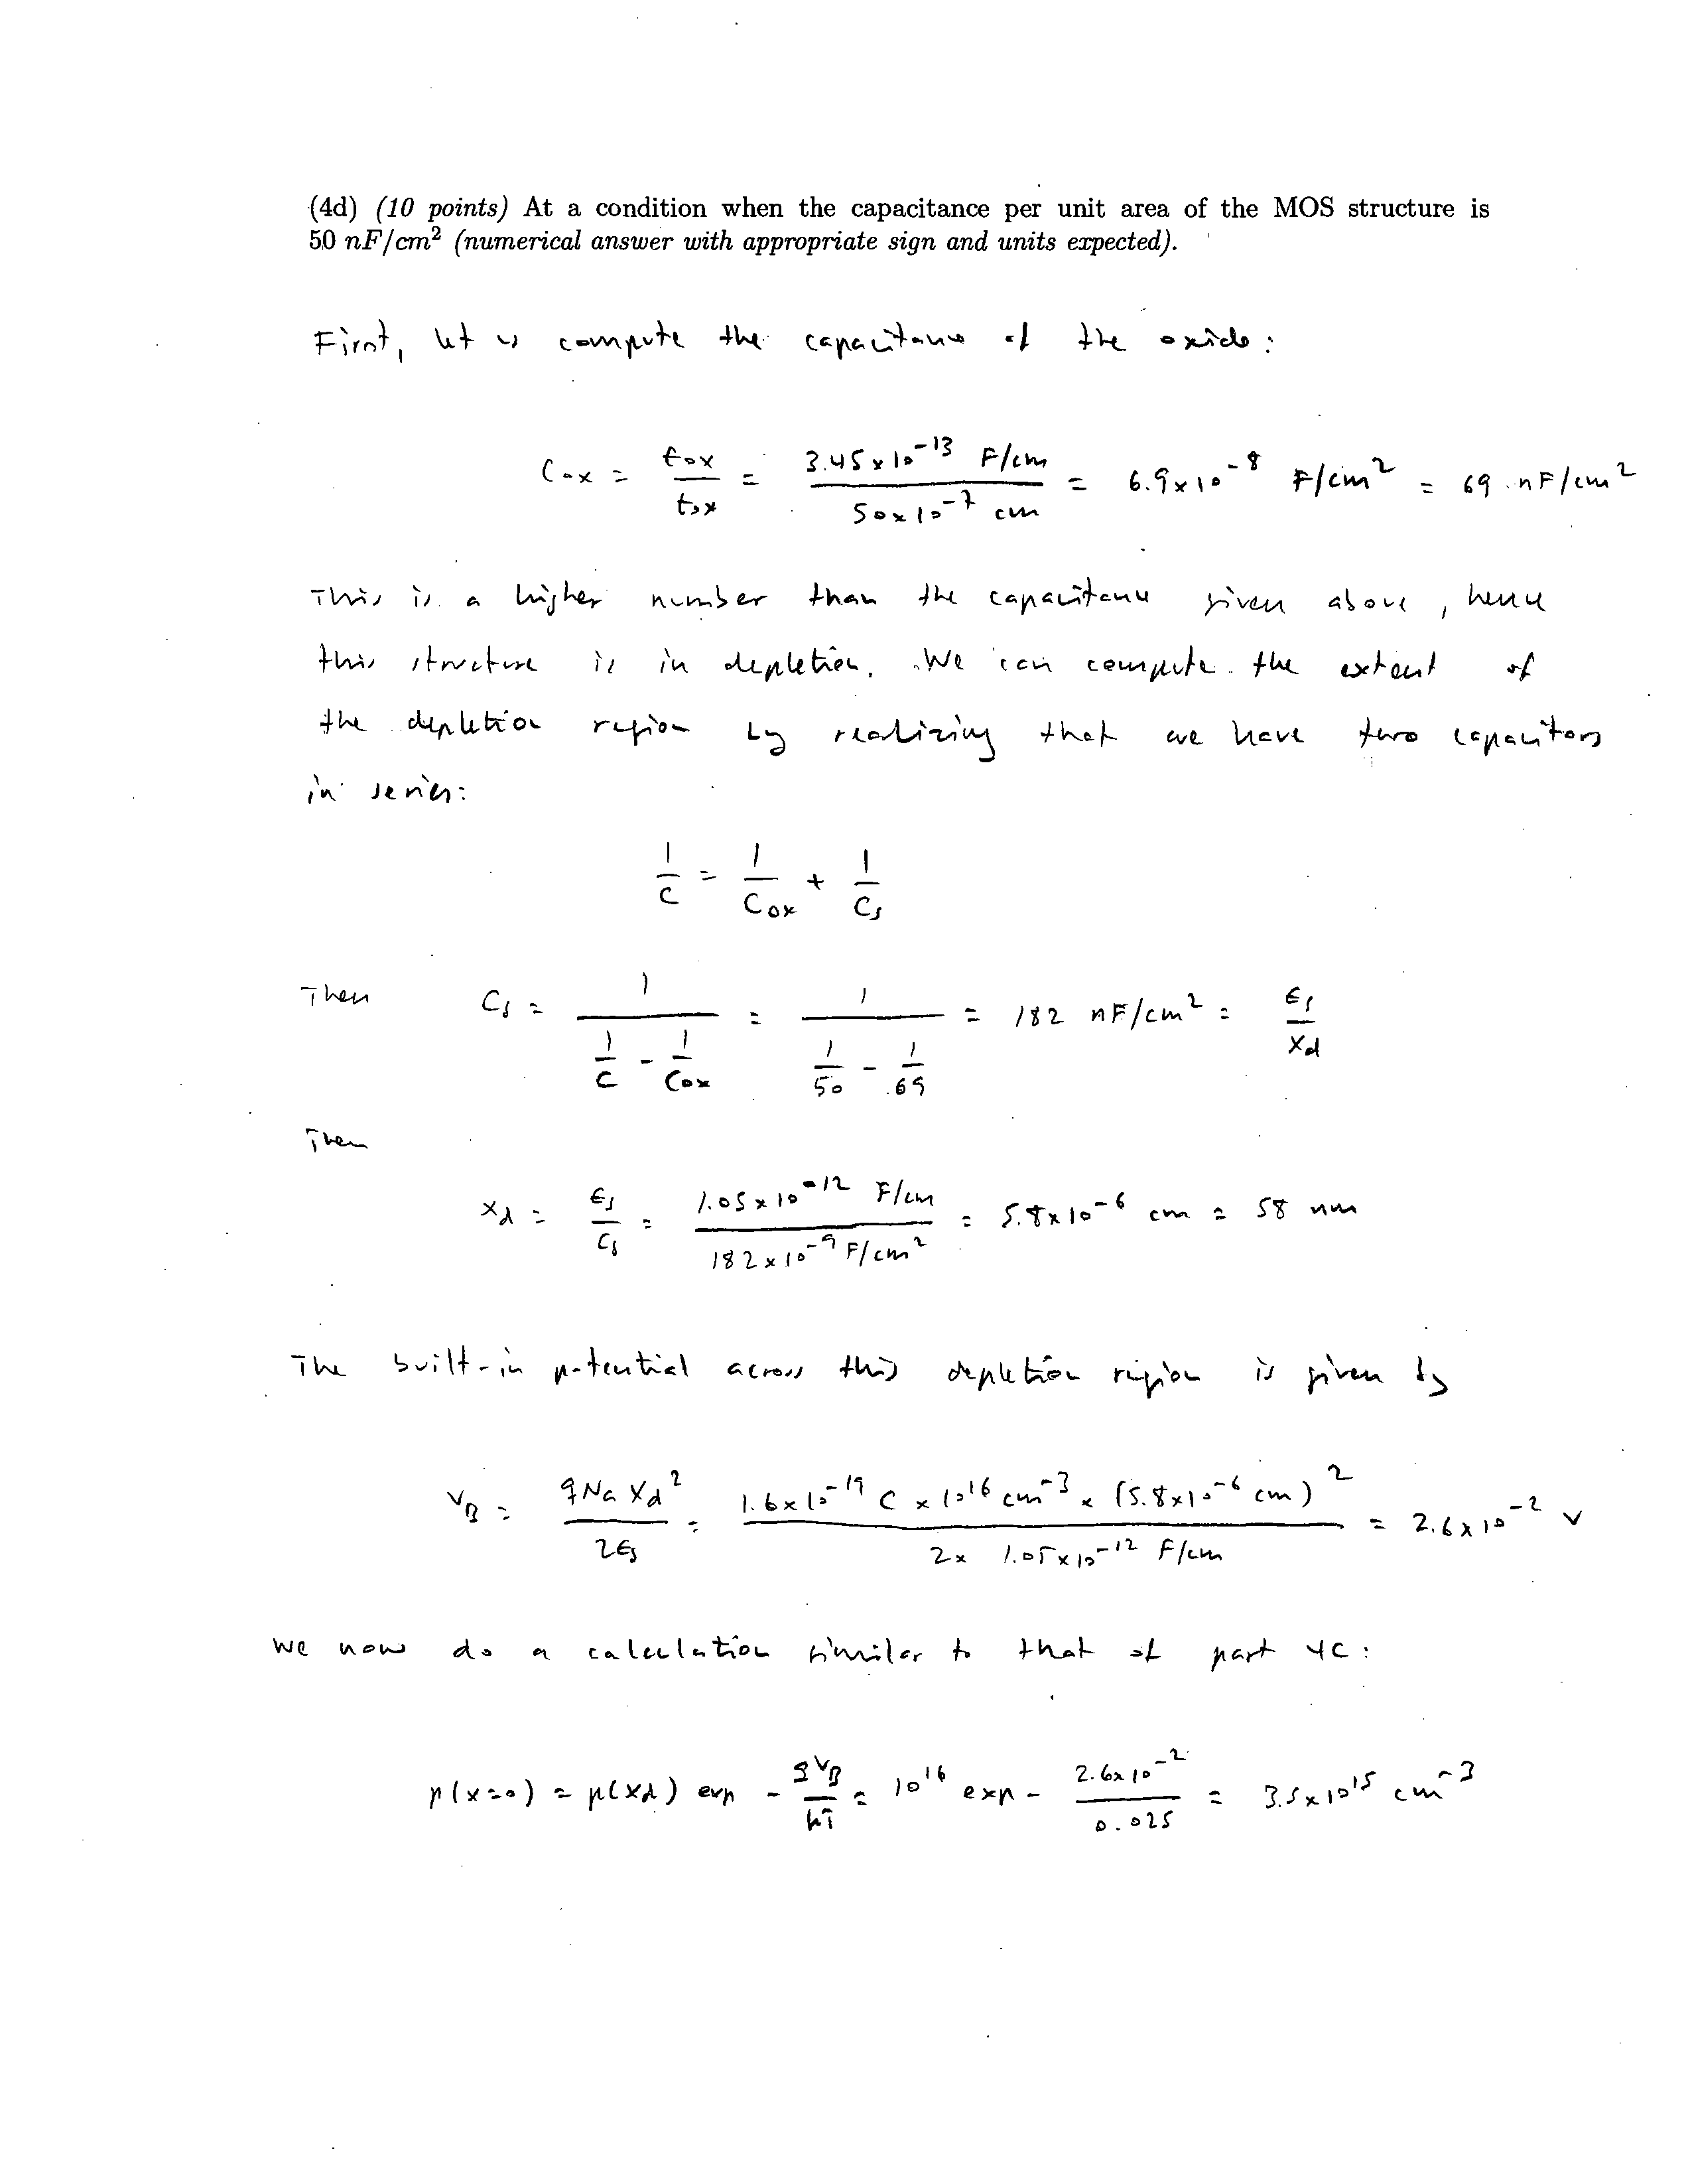 (4d) (10 points) At a condition when the capacitance per unit area of the MOS structure is
50 nF/cm² (numerical answer with appropriate sign and units expected).
First, let us compute the capacitance of the oxide:
Cox = εox/tox = 3.45x10⁻¹³ F/cm / 50x10⁻⁷ cm = 6.9x10⁻⁸ F/cm² = 69 nF/cm²
This is a higher number than the capacitance given above, hence
this structure is in depletion. We can compute the extent of
the depletion region by realizing that we have two capacitors
in series:
1/C = 1/Cox + 1/Cs
Then Cs = 1/(1/C - 1/Cox) = 1/(1/50 - 1/69) = 182 nF/cm² = εs/xd
Then
xd = εs/Cs = 1.05x10⁻¹² F/cm / 182x10⁻⁹ F/cm² = 5.8x10⁻⁶ cm = 58 nm
The built-in potential across this depletion region is given by
VB = qNa xd²/2εs = 1.6x10⁻¹⁹ C x 10¹⁶ cm⁻³ x (5.8x10⁻⁶ cm)² / 2x 1.05x10⁻¹² F/cm = 2.6x10⁻² V
We now do a calculation similar to that of part 4c:
p(x=0) = p(xd) exp - qVB/kT = 10¹⁶ exp - 2.6x10⁻²/0.025 = 3.5x10¹⁵ cm⁻³